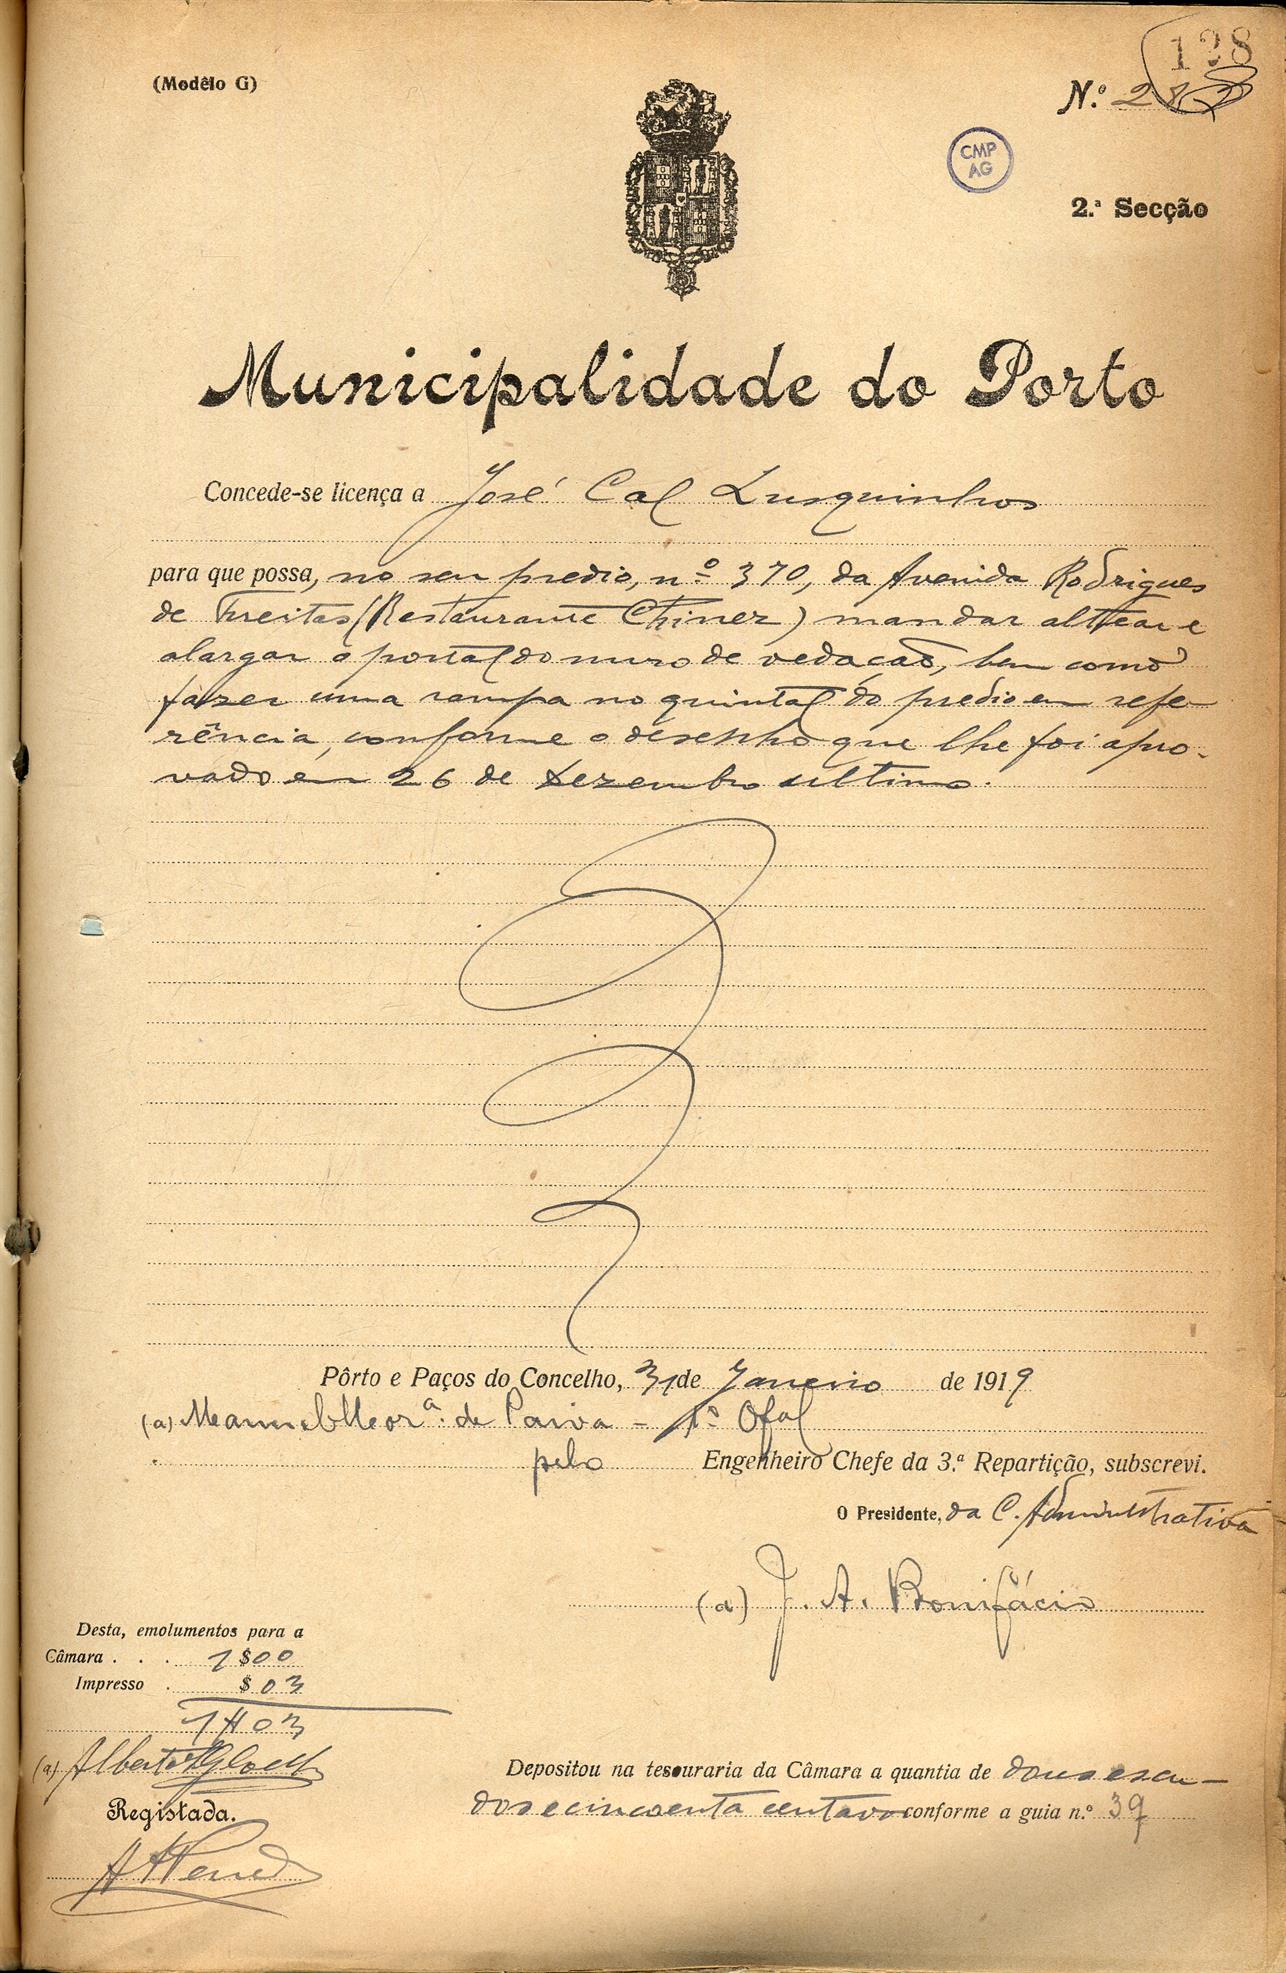 (Modêlo G)
128
N.º
CMP
AG
2.ª Secção
Municipalidade do Porto
Concede-se licença a José Cal Lusquinhos
para que possa, no seu predio, nº 370, da Avenida Rodrigues
de Freitas (Restaurante Chinez) mandar altear e
alargar o portal do muro de vedação, bem como
fazer uma rampa no quintal do predio em refe-
rência, conforme o desenho que lhe foi apro-
vado em 26 de Dezembro ultimo.
Pôrto e Paços do Concelho, 31 de Janeiro de 1919
(a) Manuel Morª. de Paiva - 1º Ofal
pelo Engenheiro Chefe da 3.ª Repartição, subscrevi.
O Presidente, da C. Administrativa
(a) J. A. Bonifácio
Desta, emolumentos para a
Câmara . . . 1$00
Impresso . $03
1$03
(a) Alberto
Registada.
Depositou na tesouraria da Câmara a quantia de dous escu-
dos e cincoenta centavos conforme a guia n.º 39